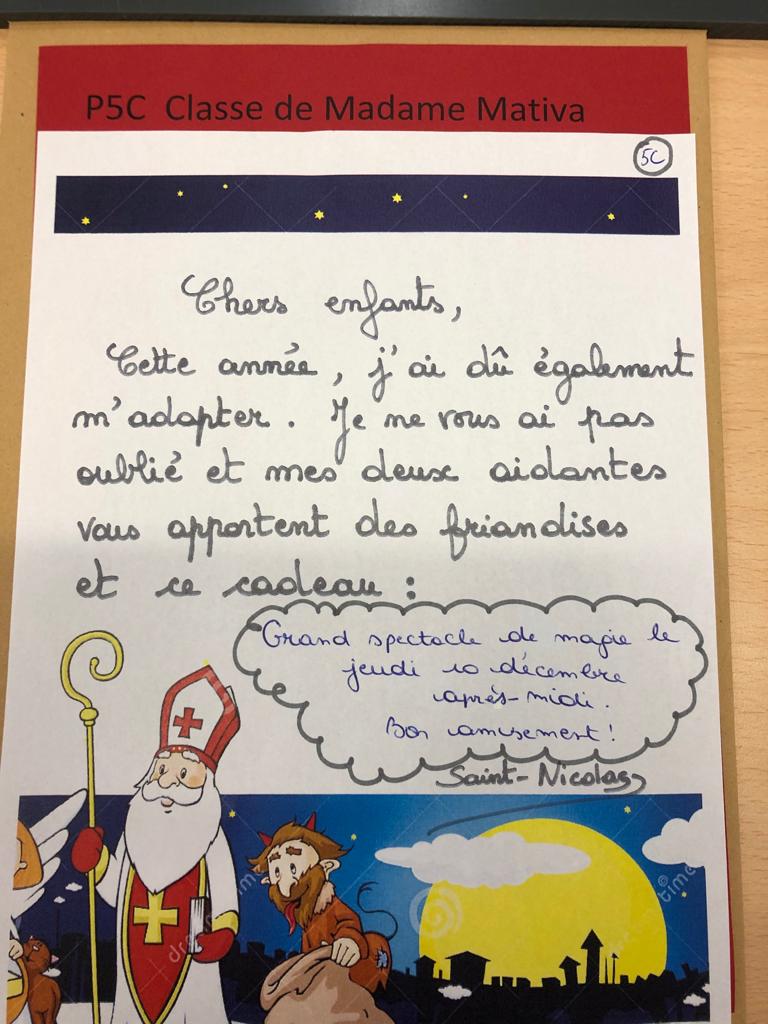 P5C Classe de Madame Mativa
5C
Chers enfants,
Cette année, j'ai dû également
m'adapter. Je ne vous ai pas
oublié et mes deux aidantes
vous apportent des friandises
et ce cadeau :
Grand spectacle de magie le
jeudi 10 décembre
après-midi.
Bon amusement!
Saint-Nicolas